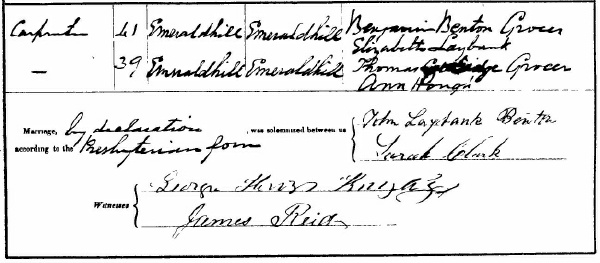 Carpenter 41 Emeraldhill Emeraldhill Benjamin Benton Grocer
Elizabeth Laybank
— 39 Emeraldhill Emeraldhill Thomas Grocer
Ann
Marriage, by declaration was solemnized between us John Laybank Benton
according to the Presbyterian form Sarah Clark
George Henry
Witnesses
James Reid